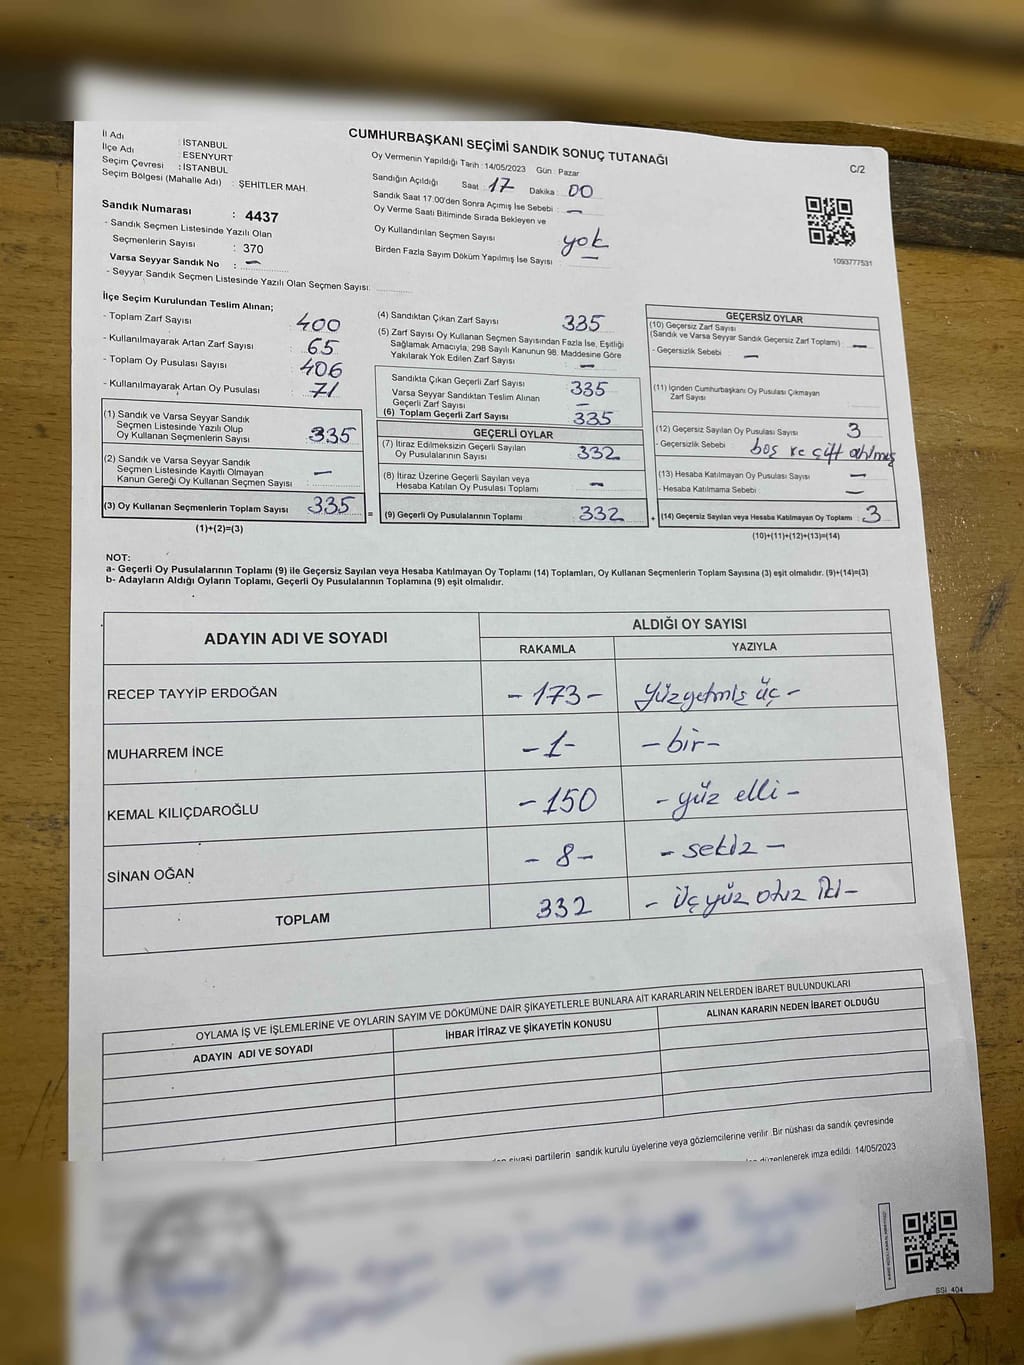 CUMHURBAŞKANI SEÇİMİ SANDIK SONUÇ TUTANAĞI
C/2
İl Adı : İSTANBUL
İlçe Adı : ESENYURT
Seçim Çevresi : İSTANBUL
Seçim Bölgesi (Mahalle Adı) : ŞEHİTLER MAH.
Sandık Numarası : 4437
- Sandık Seçmen Listesinde Yazılı Olan
Seçmenlerin Sayısı : 370
Varsa Seyyar Sandık No : —
- Seyyar Sandık Seçmen Listesinde Yazılı Olan Seçmen Sayısı:
Oy Vermenin Yapıldığı Tarih : 14/05/2023 Gün : Pazar
Sandığın Açıldığı Saat : 17 Dakika : 00
Sandık Saat 17.00'den Sonra Açımış İse Sebebi : —
Oy Verme Saati Bitiminde Sırada Bekleyen ve
Oy Kullandırılan Seçmen Sayısı yok
Birden Fazla Sayım Döküm Yapılmış İse Sayısı : —
1093777531
İlçe Seçim Kurulundan Teslim Alınan;
- Toplam Zarf Sayısı : 400
- Kullanılmayarak Artan Zarf Sayısı : 65
- Toplam Oy Pusulası Sayısı : 406
- Kullanılmayarak Artan Oy Pusulası : 71
(1) Sandık ve Varsa Seyyar Sandık
Seçmen Listesinde Yazılı Olup
Oy Kullanan Seçmenlerin Sayısı : 335
(2) Sandık ve Varsa Seyyar Sandık
Seçmen Listesinde Kayıtlı Olmayan
Kanun Gereği Oy Kullanan Seçmen Sayısı : —
(3) Oy Kullanan Seçmenlerin Toplam Sayısı : 335
(1)+(2)=(3)
(4) Sandıktan Çıkan Zarf Sayısı : 335
(5) Zarf Sayısı Oy Kullanan Seçmen Sayısından Fazla İse, Eşitliği
Sağlamak Amacıyla, 298 Sayılı Kanunun 98. Maddesine Göre
Yakılarak Yok Edilen Zarf Sayısı : —
Sandıkta Çıkan Geçerli Zarf Sayısı : 335
Varsa Seyyar Sandıktan Teslim Alınan
Geçerli Zarf Sayısı : —
(6) Toplam Geçerli Zarf Sayısı : 335
GEÇERLİ OYLAR
(7) İtiraz Edilmeksizin Geçerli Sayılan
Oy Pusulalarının Sayısı : 332
(8) İtiraz Üzerine Geçerli Sayılan veya
Hesaba Katılan Oy Pusulası Toplamı : —
= (9) Geçerli Oy Pusulalarının Toplamı : 332
GEÇERSİZ OYLAR
(10) Geçersiz Zarf Sayısı
(Sandık ve Varsa Seyyar Sandık Geçersiz Zarf Toplamı) : —
- Geçersizlik Sebebi : —
(11) İçinden Cumhurbaşkanı Oy Pusulası Çıkmayan
Zarf Sayısı
(12) Geçersiz Sayılan Oy Pusulası Sayısı : 3
- Geçersizlik Sebebi : boş ve çift
(13) Hesaba Katılmayan Oy Pusulası Sayısı : —
- Hesaba Katılmama Sebebi : —
+ (14) Geçersiz Sayılan veya Hesaba Katılmayan Oy Toplamı : 3
(10)+(11)+(12)+(13)=(14)
NOT:
a- Geçerli Oy Pusulalarının Toplamı (9) ile Geçersiz Sayılan veya Hesaba Katılmayan Oy Toplamı (14) Toplamları, Oy Kullanan Seçmenlerin Toplam Sayısına (3) eşit olmalıdır. (9)+(14)=(3)
b- Adayların Aldığı Oyların Toplamı, Geçerli Oy Pusulalarının Toplamına (9) eşit olmalıdır.
ADAYIN ADI VE SOYADI
ALDIĞI OY SAYISI
RAKAMLA YAZIYLA
RECEP TAYYİP ERDOĞAN - 173 - Yüzyetmiş üç -
MUHARREM İNCE - 1 - - bir -
KEMAL KILIÇDAROĞLU - 150 - yüz elli -
SİNAN OĞAN - 8 - - sekiz -
TOPLAM 332 - üçyüz otuz iki -
OYLAMA İŞ VE İŞLEMLERİNE VE OYLARIN SAYIM VE DÖKÜMÜNE DAİR ŞİKAYETLERLE BUNLARA AİT KARARLARIN NELERDEN İBARET BULUNDUKLARI
ADAYIN ADI VE SOYADI İHBAR İTİRAZ VE ŞİKAYETİN KONUSU ALINAN KARARIN NEDEN İBARET OLDUĞU
siyasi partilerin sandık kurulu üyelerine veya gözlemcilerine verilir. Bir nüshası da sandık çevresinde
düzenlenerek imza edildi. 14/05/2023
SSİ 404